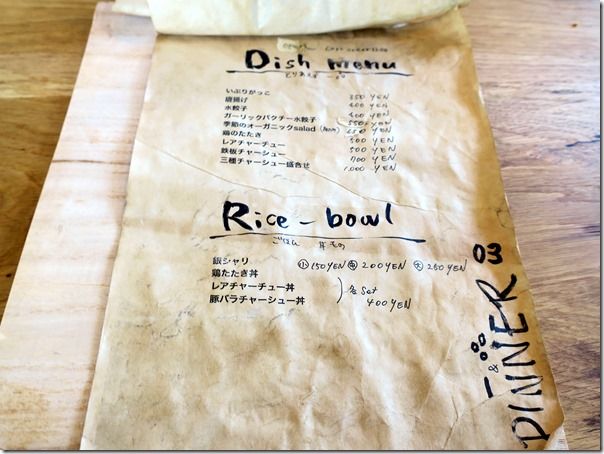 Dish menu
とりあえず 一品
いぶりがっこ 350 YEN
唐揚げ 400 YEN
水餃子 400 YEN
ガーリックパクチー水餃子 550 YEN
季節のオーガニックsalad 650 YEN
鶏のたたき 500 YEN
レアチャーチュー 500 YEN
鉄板チャーシュー 700 YEN
三種チャーシュー盛合せ 1,000 YEN
Rice-bowl
ごはん 丼もの
銀シャリ 小 150YEN 中 200YEN 大 250YEN
鶏たたき丼
レアチャーチュー丼
豚バラチャーシュー丼
各Set
400YEN
03
DINNER